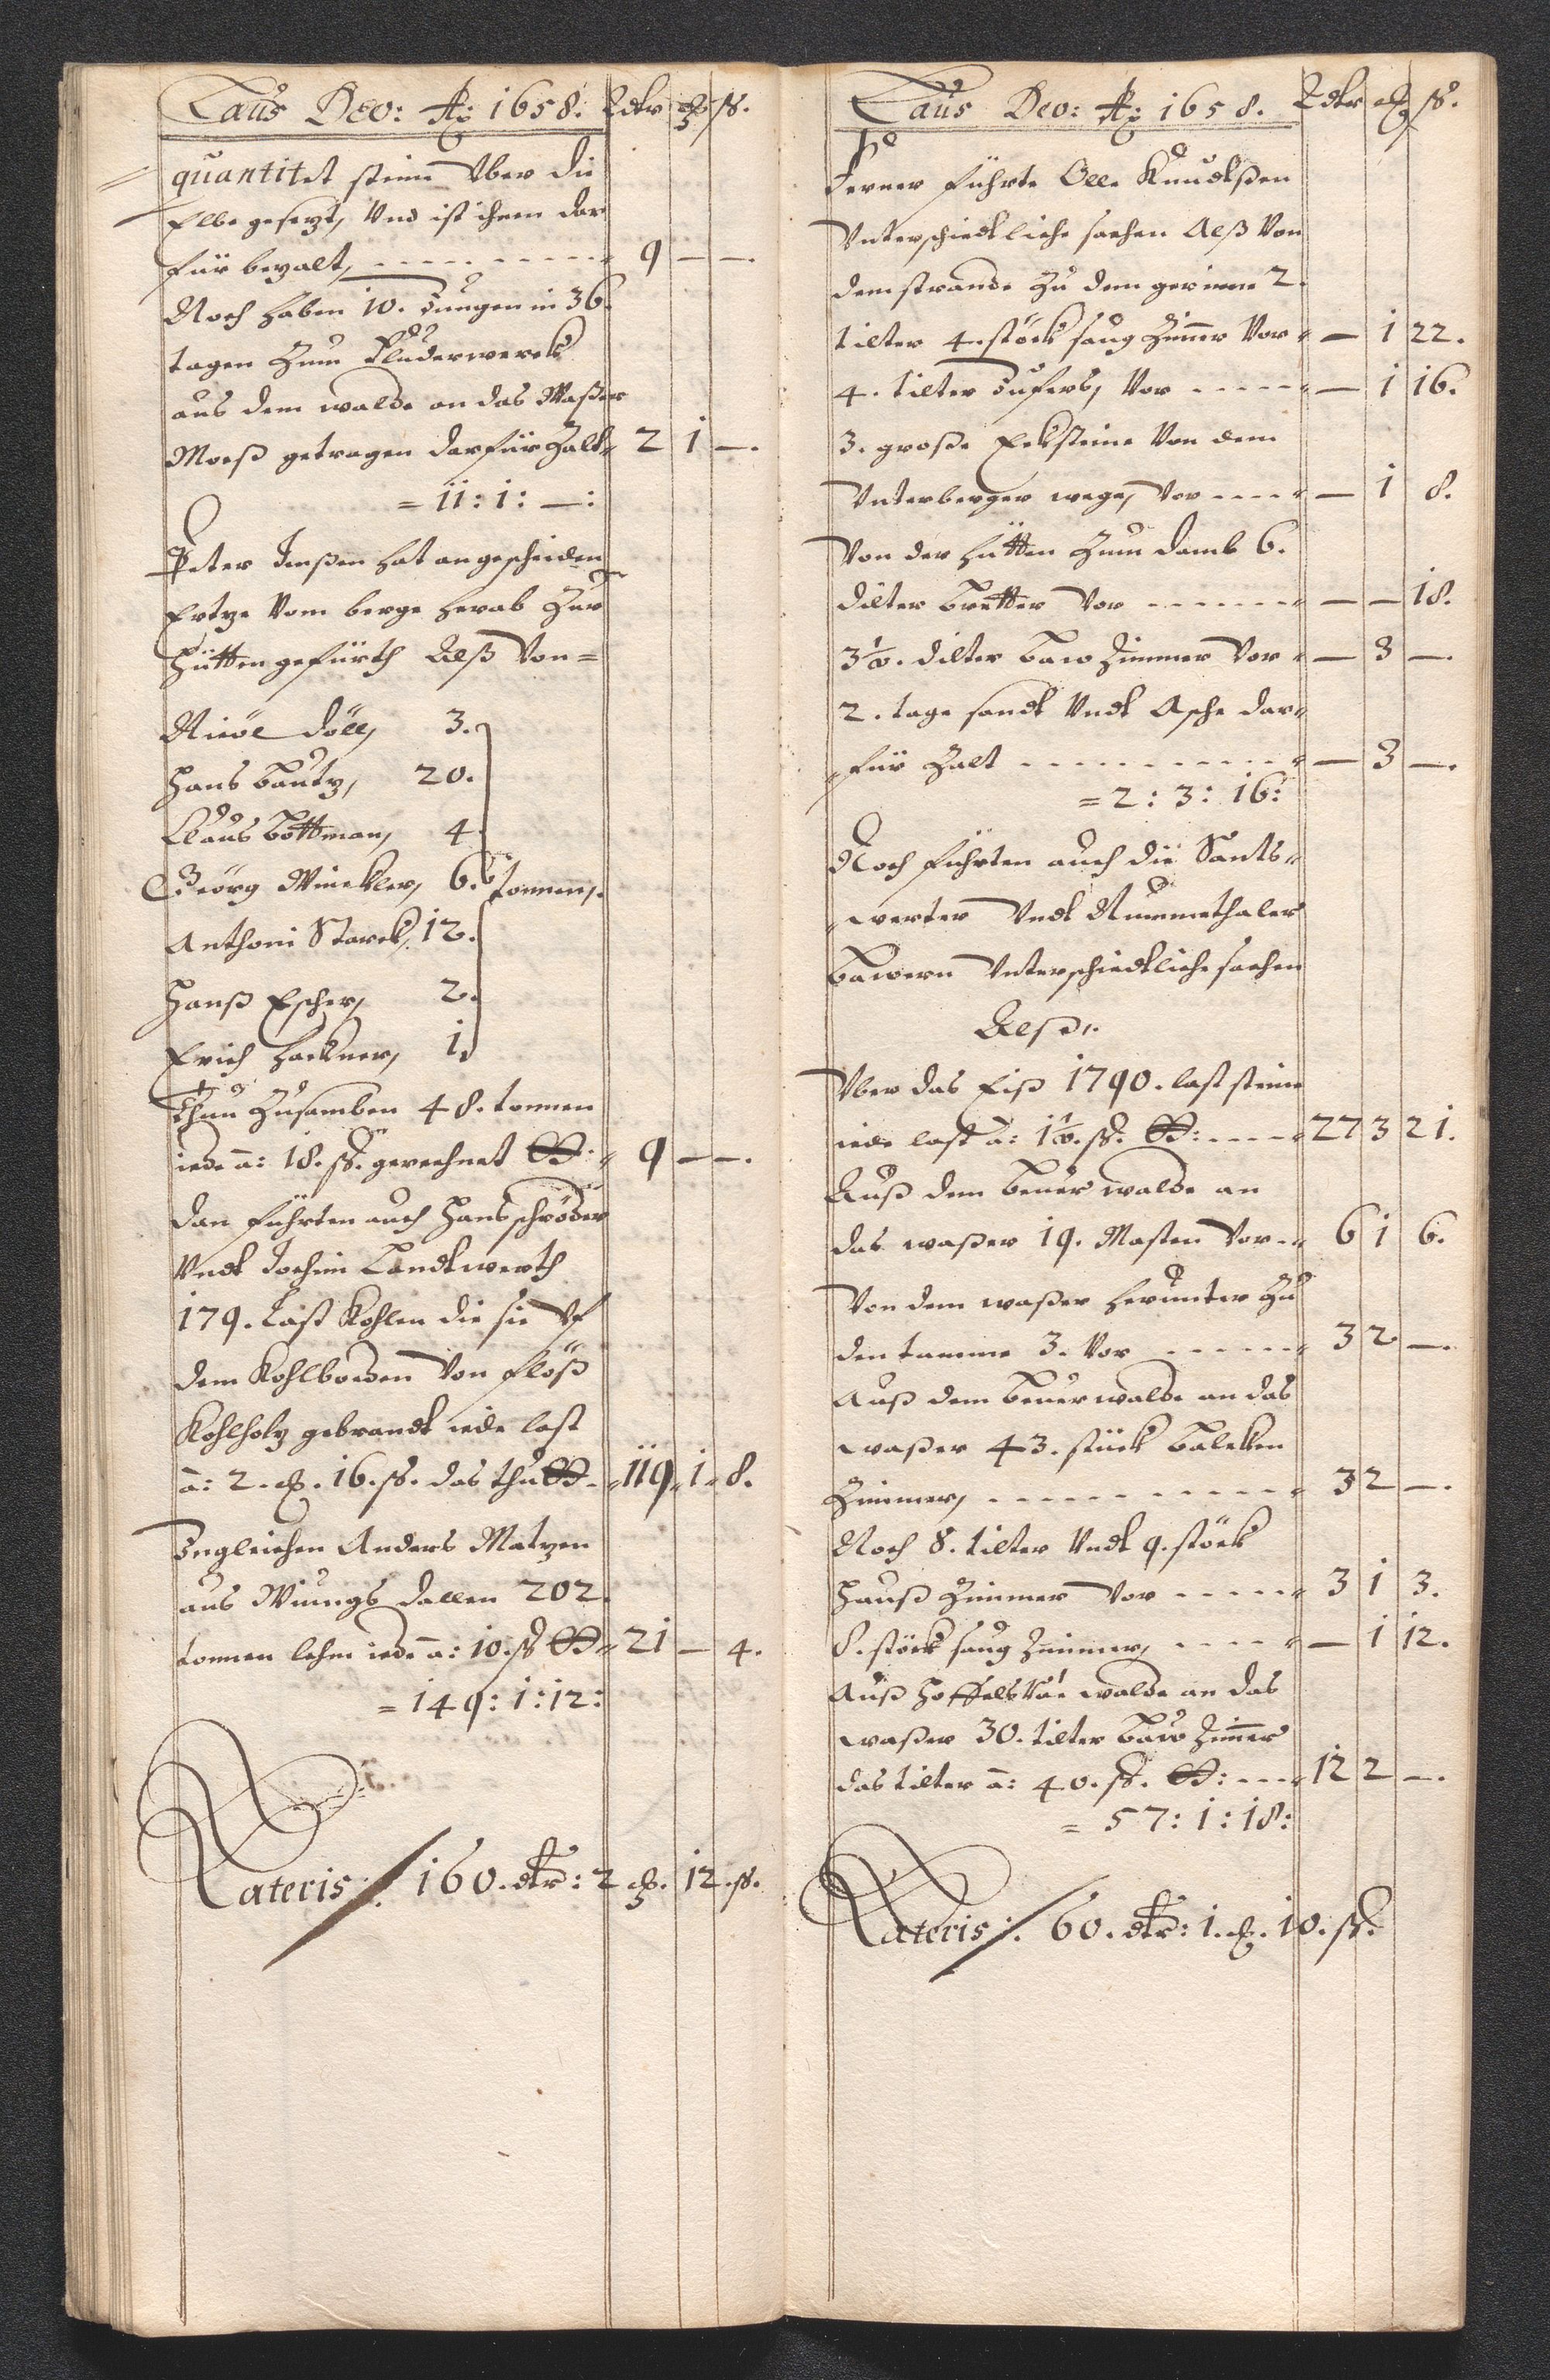 Laus Deo: Ao: 1658. Rdtr ß.
quantitet steine Vber die
Elbe gesezt, Vnd ist ihnen dar
für bezalt, 9 — —.
Noch haben 10. Jungen in 36.
tagen Zum Fluderwerck
aus dem walde an das Waßer
Morß getragen darfür Zalt 2 1 —.
= 11: 1: —:
Peter Jenßen hat an geschieden
Ertze Vom berge herab Zur
Hütten gefürth Alß Von =
Nicol Döll, 3.
Hans Bautz, 20.
Claus Bottman, 4.
Geörg Winckler, 6. tonnen,.
Anthoni Starck, 12.
Hanß Escher, 2.
Erich Hackner, 1.
Thun Zusamben 48. tonnen
iede a: 18. ß. gerechnet 9 — —.
Dan führten auch Hans schröder
Vndt Jochim Landtwerth
179. Last Kohlen die sie Vf
dem Kohlboden Von flöß
Kohlholtz gebrandt iede last
a: 2. 16. ß. das thut 119 1 8.
Ingleichen Anders Matzen
aus Wiungs dallen 202.
tonnen lehm iede a: 10. ß 21 — 4.
= 149: 1: 12:
Lateris /. 160. dtr: 2 12. ß.
Laus Deo: Ao: 1658. Rdtr ß.
Ferner führte Olle Knudtßen
Vnterschiedtliche sachen Alß Von
dem strande Zu dem gerinne 2.
tilter 4. stöck saug Zimmer Vor — 1 22.
4. tilter Vor — 1 16.
3. große Ecksteine Von dem
Vnterberger wege, Vor — 1 8.
Von der Hütten Zum damb 6.
dilter bretter Vor — — 18.
3½. dilter baw Zimmer Vor — 3 —.
2. tage sandt Vndt Asche dar
für Zalt — 3 —.
= 2: 3: 16:
Noch führten auch die Sants
werter Vndt Nummethaler
bawern Vnterschiedtliche sachen
Alß,.
Vber das Eiß 1790. last steine
iede last a: 1½. ß. 27 3 21.
Auß dem beuer walde an
das waßer 19. Masten Vor 6 1 6.
Von dem waßer herunter Zu
den tamme 3. Vor 3 2 —.
Auß dem beuer walde an das
waßer 43. stück balcken
Zimmer, 3 2 —.
Noch 8. tilter Vndt 9. stöck
Hauß Zimmer Vor 3 1 3.
8. stöck saug Zimmer, — 1 12.
Auß walde an das
waßer 30. tilter baw Zimmer
das tilter a: 40. ß. 12 2 —.
= 57: 1: 18:
Lateris /. 60. dtr: 1. 10. ß.